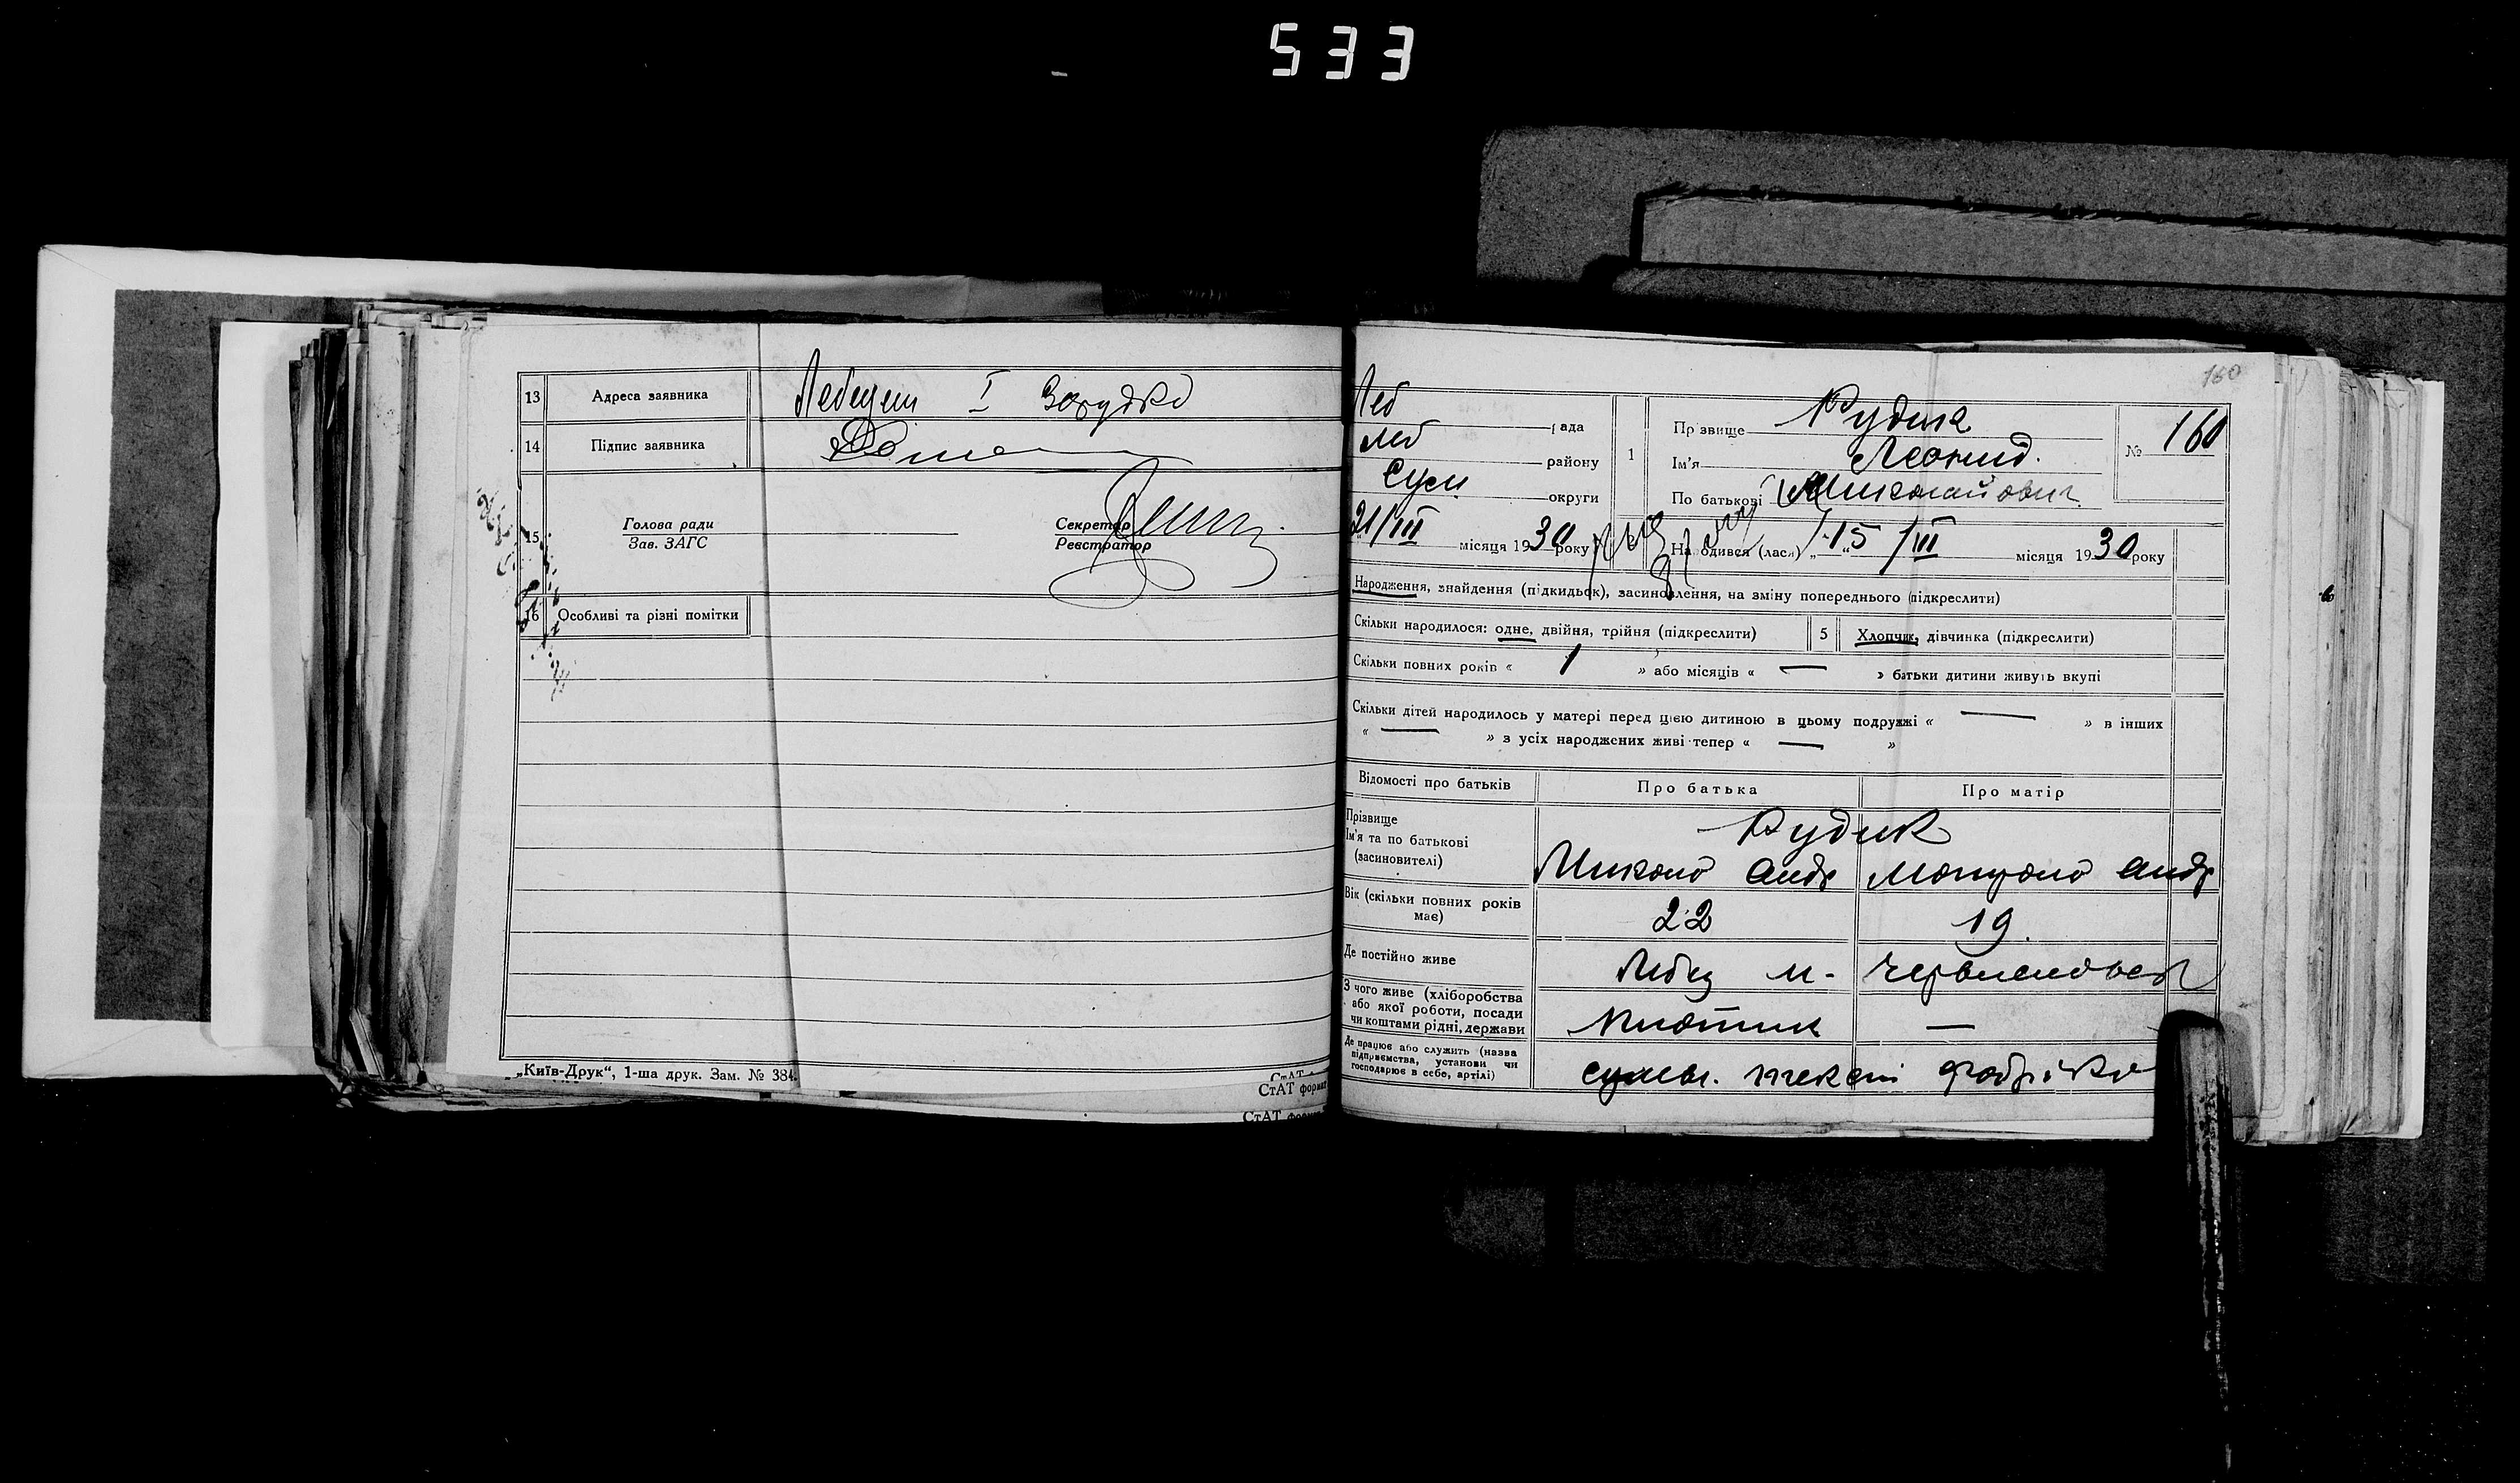 533
13 Адреса заявника Лебедин I Зарудка
14 Підпис заявника
15 Голова ради
Зав. ЗАГС
Секретар
Реєстратор
16 Особливі та різні помітки
„Київ-Друк“, 1-ша друк. Зам. № 384.
СтАТ формат
СтАТ
160
Леб рада
Леб району
Сум округи
21/III місяця 1930 року
1 Прізвище Рудик
Ім'я Леонид.
По батькові Миколайович
№ 160
Народився (лась) „15“ /III місяця 1930 року
Народження, знайдення (підкидьок), засиновлення, на зміну попереднього (підкреслити)
Скільки народилося: одне, двійня, трійня (підкреслити) 5 Хлопчик, дівчинка (підкреслити)
Скільки повних років « 1 » або місяців « — » батьки дитини живуть вкупі
Скільки дітей народилось у матері перед цією дитиною в цьому подружжі « — » в інших
« — » з усіх народжених живі тепер « — »
Відомості про батьків Про батька Про матір
Прізвище
Ім'я та по батькові
(засиновителі)
Рудик
Микола Андр
Андр
Вік (скільки повних років
має)
22 19.
Де постійно живе
З чого живе (хліборобства
або якої роботи, посади
чи коштами рідні, держави
—
Де працює або служить (назва
підприємства, установи чи
господарює в себе, артілі)